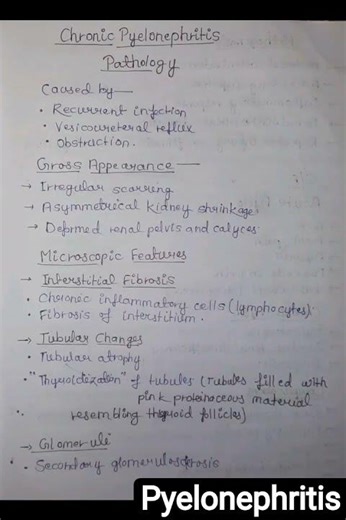 Chronic Pyelonephritis
Pathology
Caused by —
• Recurrent infection
• Vesicoureteral reflux
• Obstruction.
Gross Appearance —
→ Irregular scarring
→ Asymmetrical kidney shrinkage
→ Deformed renal pelvis and calyces
Microscopic Features
→ Interstitial Fibrosis
• Chronic inflammatory cells (lymphocytes).
• Fibrosis of interstitium.
→ Tubular Changes
• Tubular atrophy
• "Thyroidization" of tubules (Tubules filled with
pink proteinaceous material
• resembling thyroid follicles)
→ Glomeruli
• Secondary glomerulosclerosis
Pyelonephritis